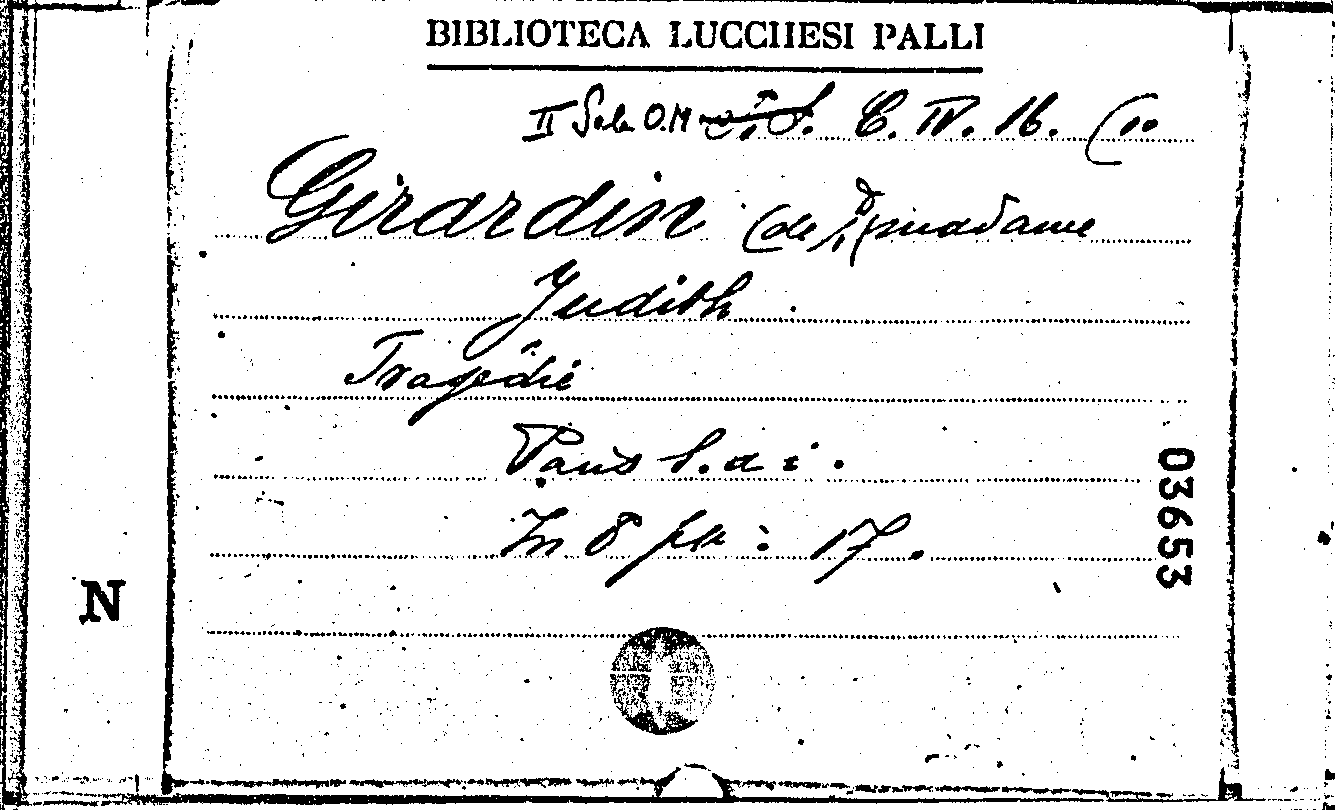 BIBLIOTECA LUCCHESI PALLI
II Sala O.M C. IV. 16. (10
Girardin (de) madame
Judith
Tragédie
Paris S. a. i.
In 8 pp : 17.
03653
N